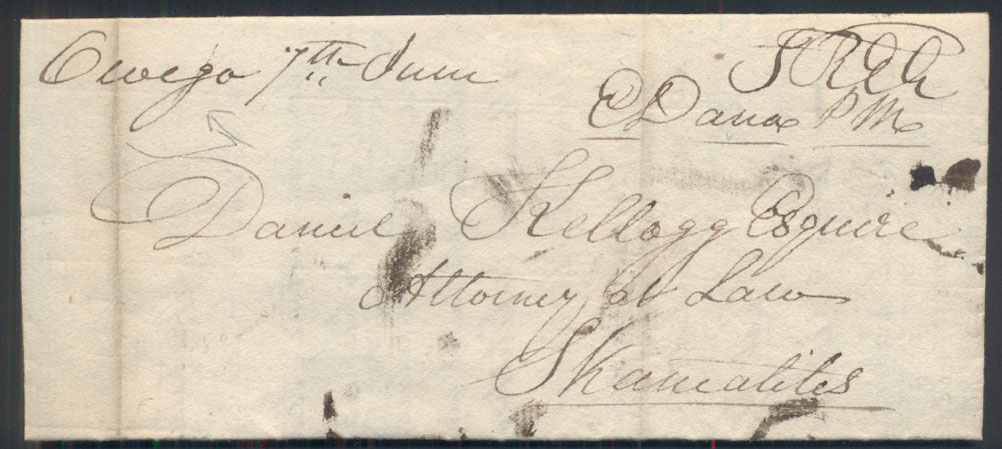 Owego 7th June
FREE
E Dana PM
Daniel Kellogg Esquire
Attorney at Law
Skaneatiles